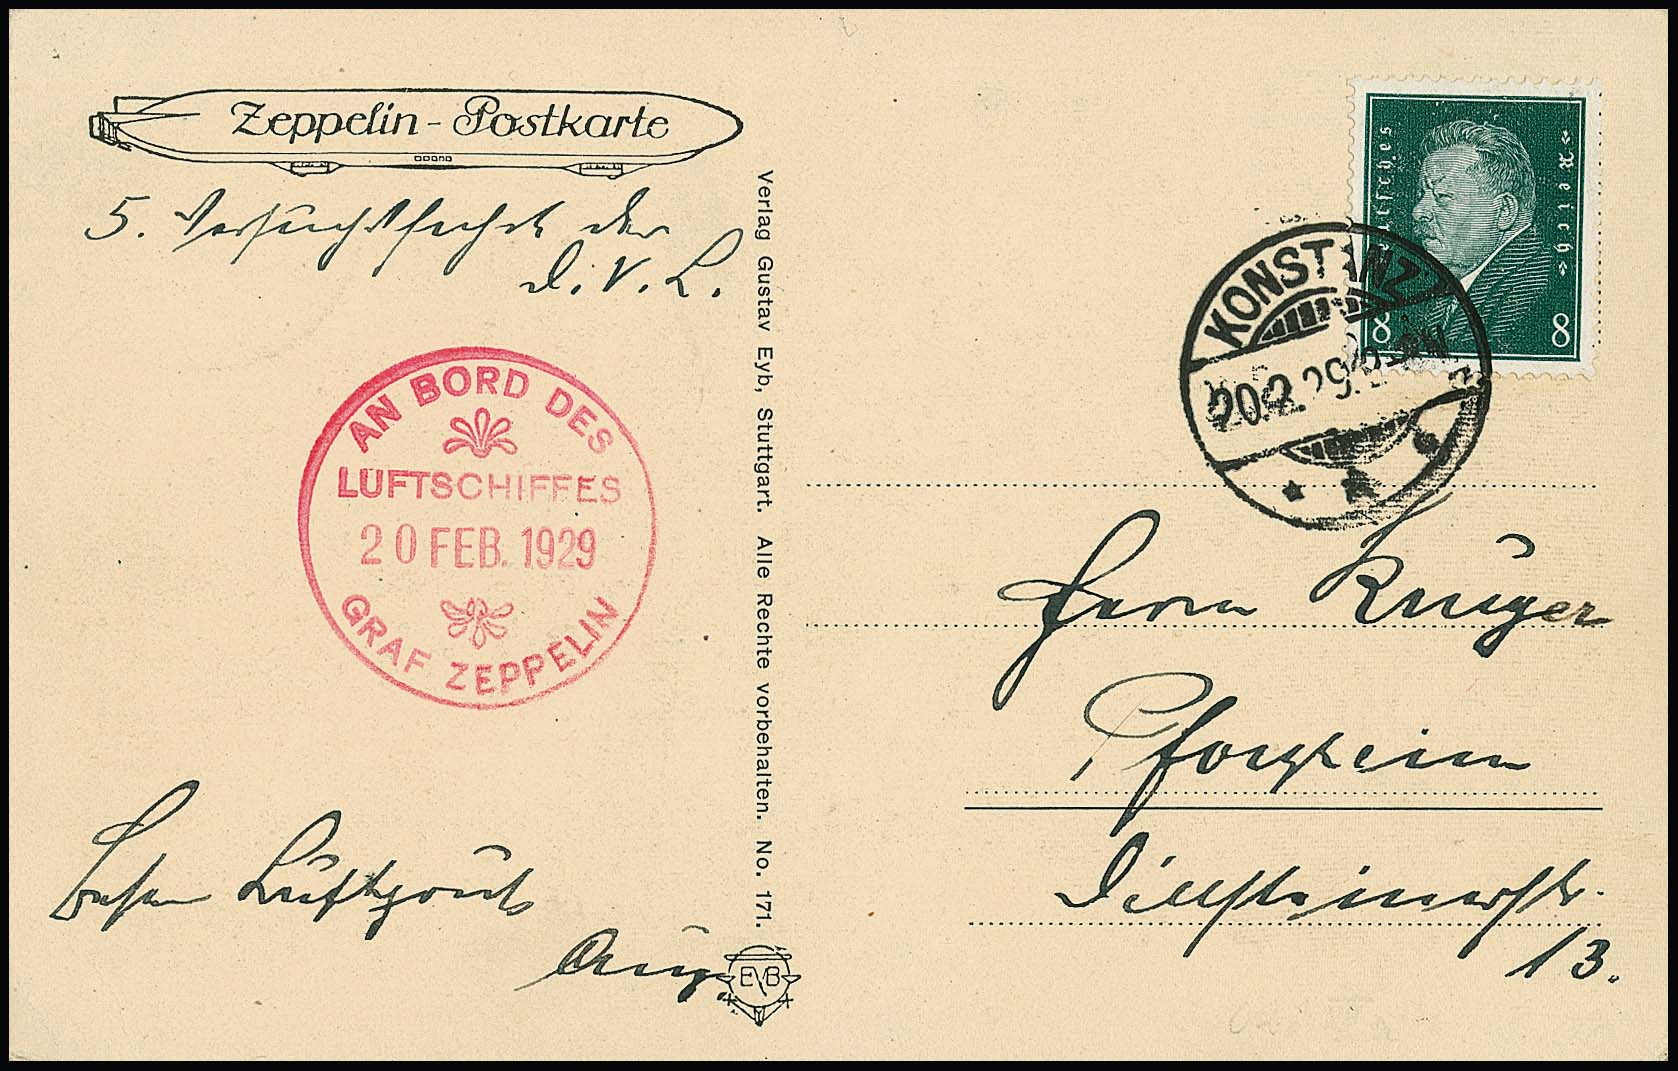 Zeppelin-Postkarte
5. Versuchsfahrt der
D.V.L.
AN BORD DES
LUFTSCHIFFES
20 FEB. 1929
GRAF ZEPPELIN
Luftpost
Verlag Gustav Eyb, Stuttgart. Alle Rechte vorbehalten. No. 171.
EYB
Deutsches Reich
8 8
KONSTANZ
20.2.29
Herrn Krüger
Pforzheim
Dillsteinerstr.
13.